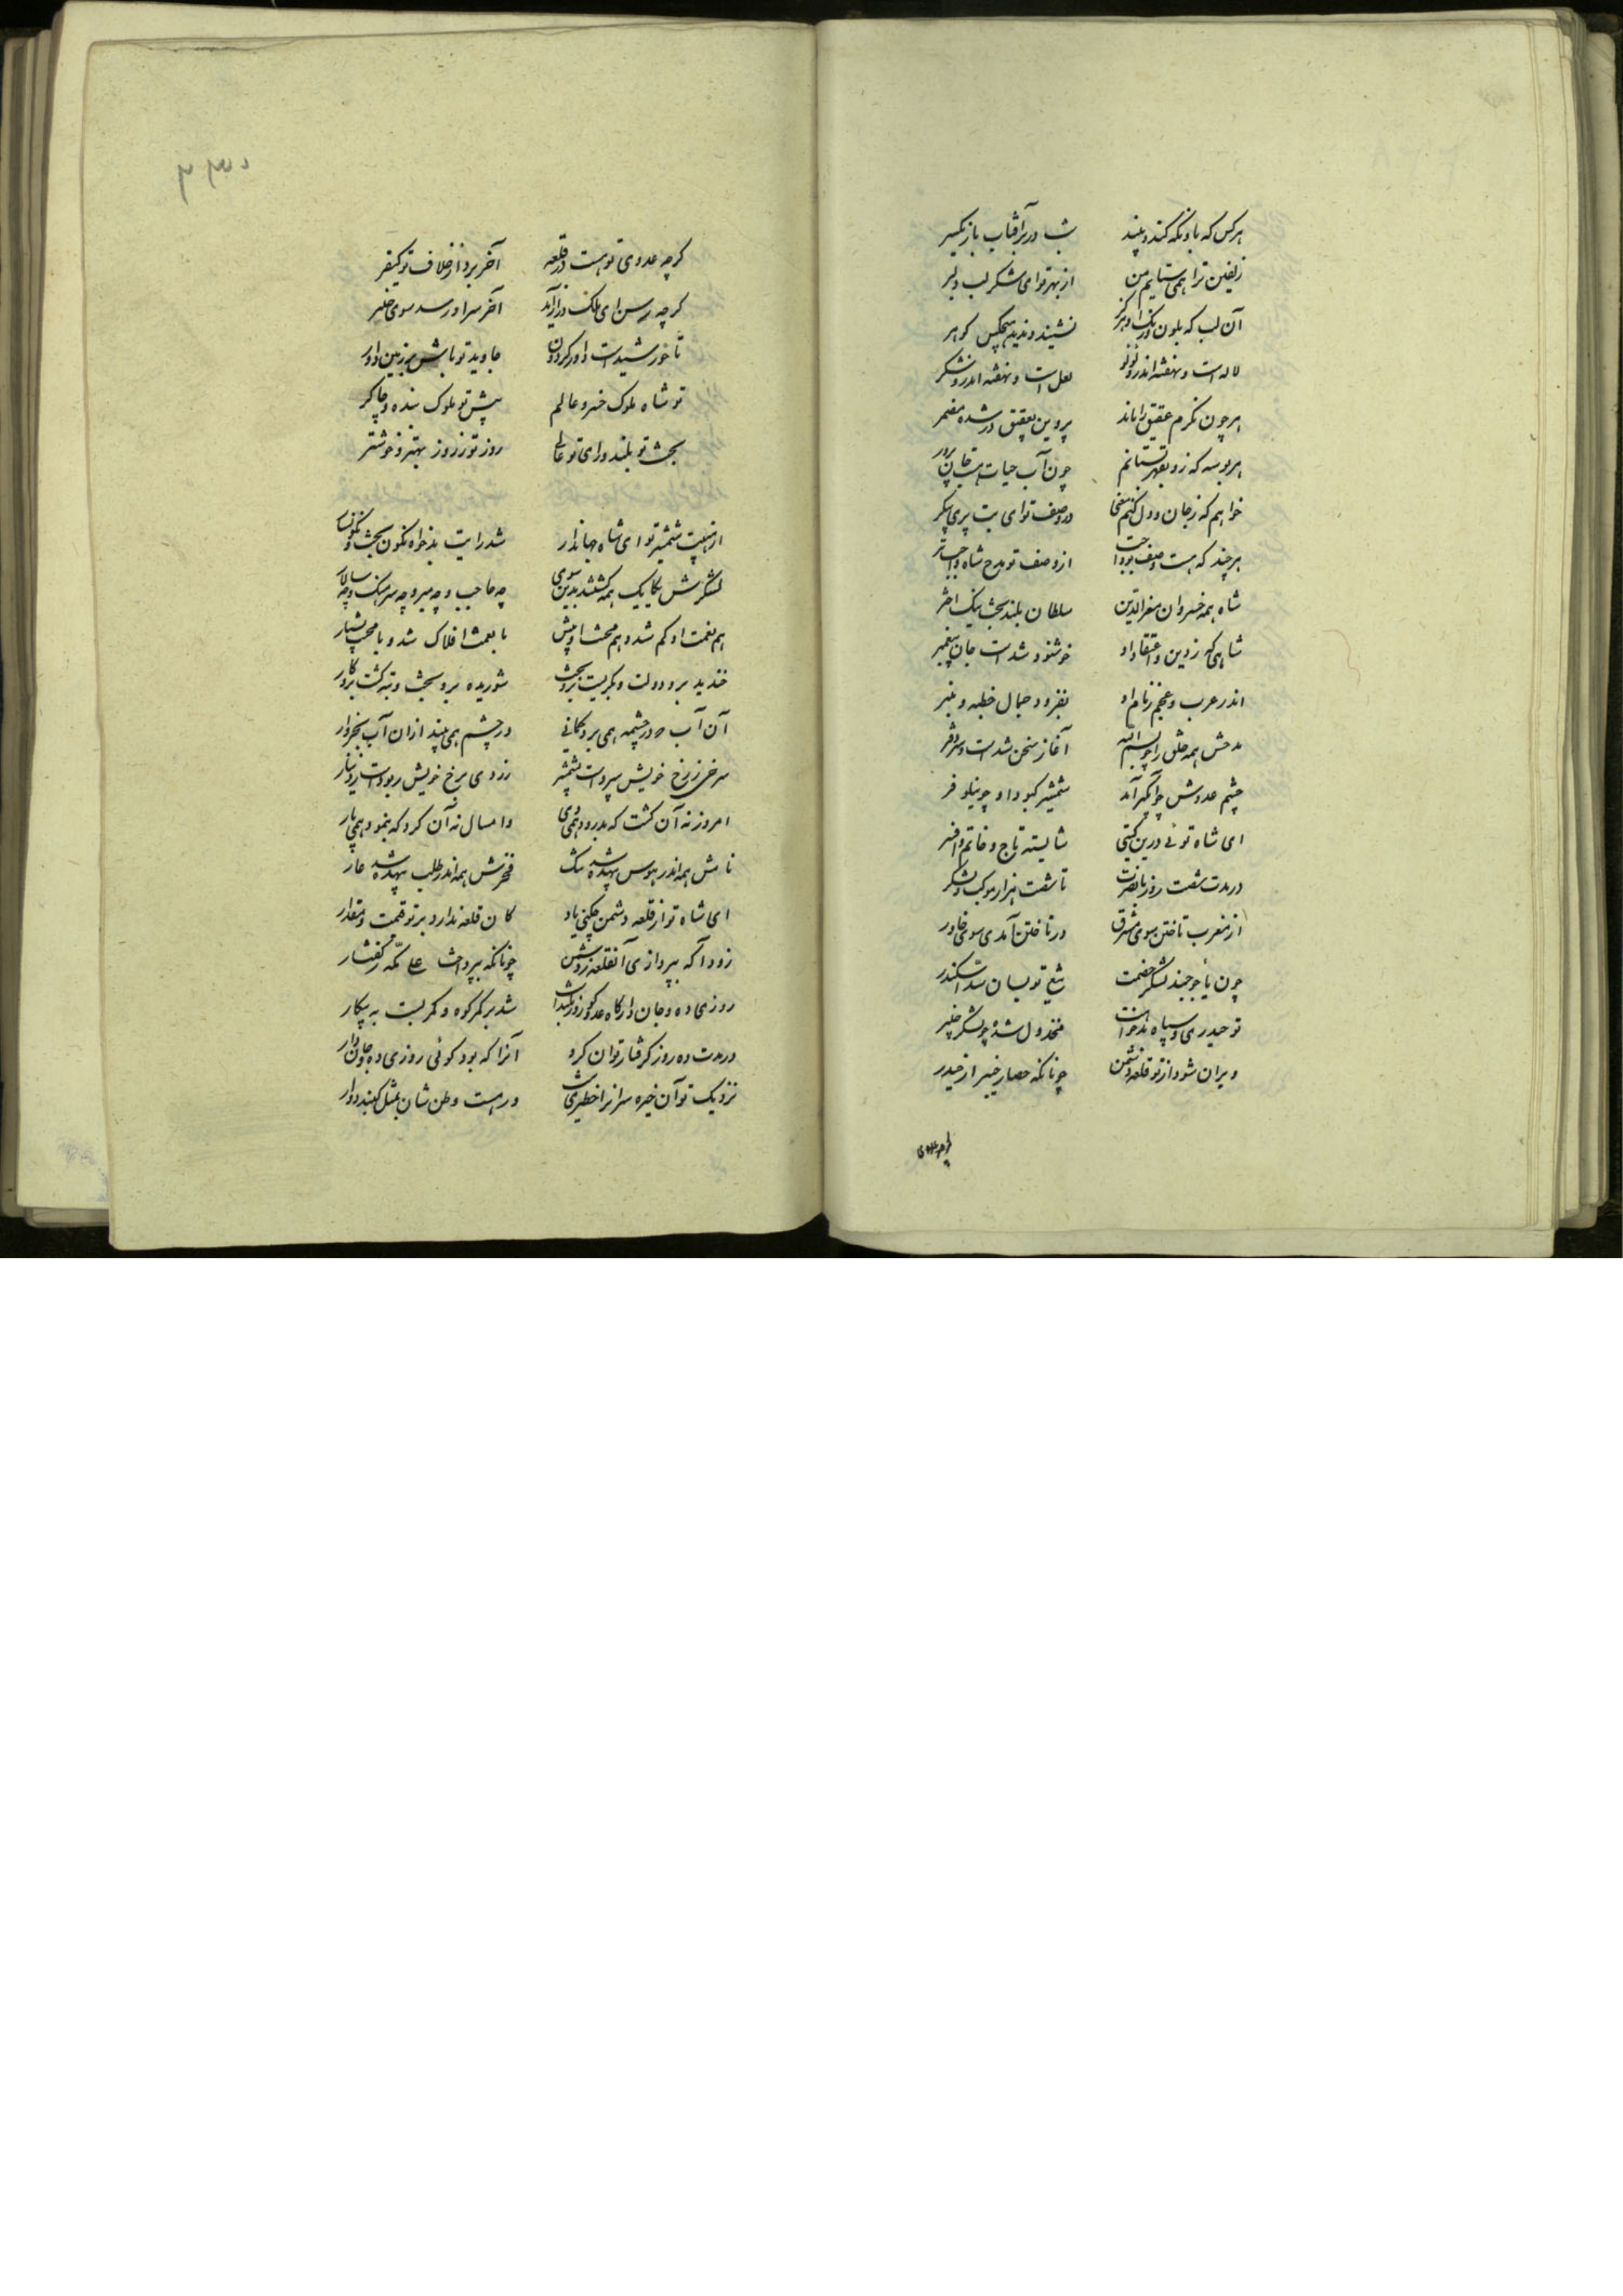 هرکس که باو نکه کند و بیند شب در بر آفتاب بازیگر
زلفین ترا همی ستایم من از بهر تو ای شکر لب دلبر
آن لب که بلون و رنک او هرکز نشنید و ندید هیچکس کوهر
لاله است و نهفته اندرو لولو لعل است و نهفته اندرو شکر
هر چون نکرم عقیق را ماند پروین بعقیق در شده مضمر
هر بوسه که زو بقهر بستانم چون آب حیات هست جان پرور
خواهم که ز جان و دل کنم معنی در وصف تو ای بت پری پیکر
هرچند که هست وصف تو واجب از وصف تو مدح شاه واجبتر
شاه همه خسروان معزالدین سلطان بلند بخت نیک اختر
شاهی که ز دین و اعتقاد او خوشنود شد است جان پیغمبر
اندر عرب و عجم ز نام او بفزود جمال خطبه و منبر
مدحش همه خلق را چو بسم الله آغاز سخن شد است و سر دفتر
چشم عدوش چو آبگیر آمد شمشیر کبود او چو نیلوفر
ای شاه توئی درین گیتی شایسته تاج و خاتم و افسر
در مدت شصت روز با نصرت با شصت هزار موکب و لشکر
از مغرب تاختن سوی مشرق در تاختن آمدی سوی خاور
چون یأجوجند لشکر خصمت تیغ تو بسان سد اسکندر
تو حیدری و سپاه بدخواهت مخذول شده چو لشکر خیبر
ویران شود از تو قلعه دشمن چونانکه حصار خیبر از حیدر
کرچه عدوی
کرچه عدوی تو هست در قلعه آخر برد از خلاف تو کیفر
کرچه رسن ای ملک دراز آید آخر سر او رسد سوی چنبر
تا خورشید است داور کردون جاوید تو باش بر زمین داور
تو شاه ملوک خسرو عالم پیش تو ملوک بنده و چاکر
بخت تو بلند و رای تو عالی روز تو ز روز بهتر و خوشتر
از هیبت شمشیر تو ای شاه جهاندار شد رایت بدخواه نگون بخت نگونسار
لشکرش یکایک همه کشتند بدین سوی چه حاجب و چه میر و چه سرهنگ و چه سالار
هم نعمت او کم شد و هم محنت او بیش با نعمت اندک شد و با محنت بسیار
خندید برو دولت و بگریست برو بخت شوریده برو بخت و تبه کشت برو کار
آن آب که در چشمه همی برد کمانی در چشم همی بیند ازان آب بخروار
سرخی ز رخ خویش سپرده است بشمشیر زردی برخ خویش ربوده است ز دینار
امروز نه آن کشت که بدرود همی دی و امسال نه آن کرد که بنمود همی پار
نامش همه اندر هوس بیهده شد ننک فخرش همه اندر طلب بیهده شد عار
ای شاه تو از قلعه دشمن چکنی یاد کان قلعه ندارد بر تو قیمت و مقدار
زودا که بپردازی آنقلعه ز دشمن چونانکه بپرداخت علی مکه ز کفار
روزی ده و جان دار کاه عدو کوز تو بگذاشت شد بر کمر کوه و کمر بست به پیکار
در مدت ده روز کرفتار توان کرد آنرا که بود کوئی روزی ده و جان دار
نزدیک تو آن خیره سرانرا خطری نیست ور هست وطن شان بمثل کنبد دوار